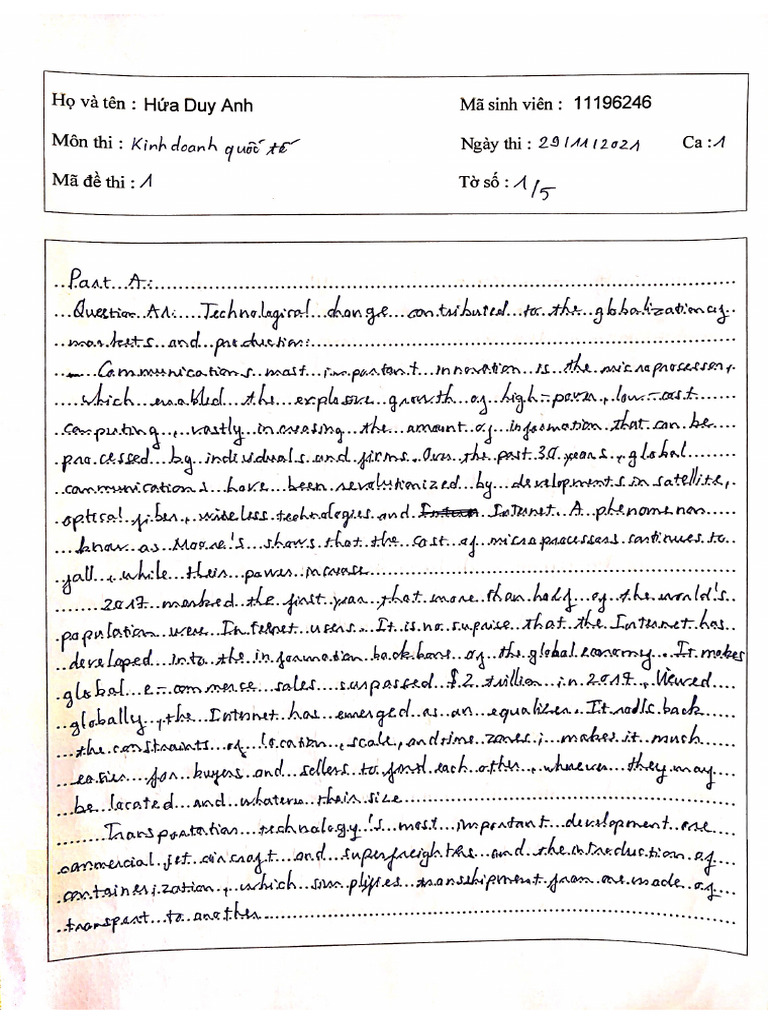 Họ và tên : Hứa Duy Anh
Mã sinh viên : 11196246
Môn thi : Kinh doanh quốc tế
Ngày thi : 29/11/2021 Ca : 1
Mã đề thi : 1
Tờ số : 1/5
Part A:
Question A1: Technological change contributed to the globalization of
markets and production:
- Communications most important innovation is the microprocessor,
which enabled the explosive growth of high-power, low-cost
computing, vastly increasing the amount of information that can be
processed by individuals and firms. Over the past 30 years, global
communications have been revolutionized by developments in satellite,
optical fiber, wireless technologies and Internet A phenomenon
know as Moore's shows that the cost of microprocessors continues to
fall, while their power increase
2017 marked the first year that more than half of the world's
population were Internet users. It is no suprise that the Internet has
developed into the information backbone of the global economy. It makes
global e-commerce sales suspassed $2 trillion in 2017. Viewed
globally, the Internet has emerged as an equalizer. It rolls back
the constraints of location, scale, and time zones; makes it much
easier for buyers and sellers to find each other, wherever they may
be located and whatever their size
Transportation technology's most important development are
commercial jet aircraft and superfreighters and the introduction of
containerization, which simplifies transshipment from one mode of
transport to another